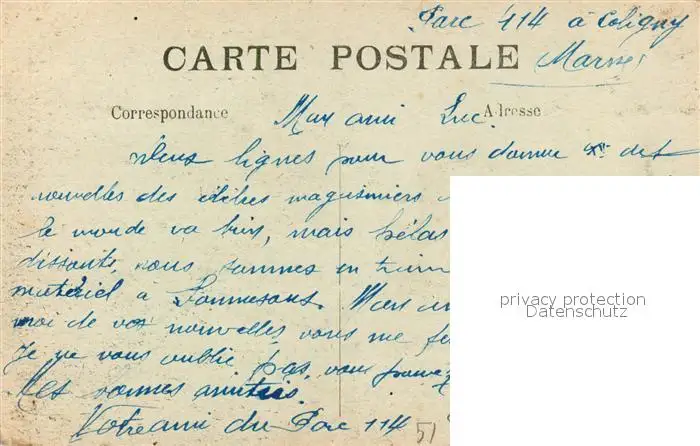 Parc 114 à Coligny
Marne
CARTE POSTALE
Correspondance
Adresse
Mon ami Luc.
Deux lignes pour vous donner des
nouvelles des magasiniers
le monde va bien, mais hélas
nous sommes en train
matériel à Mon
moi de vos nouvelles, vous me
Je ne vous oublie pas, vous
Mes bonnes amitiés.
Votre ami du Parc 114
51
privacy protection
Datenschutz